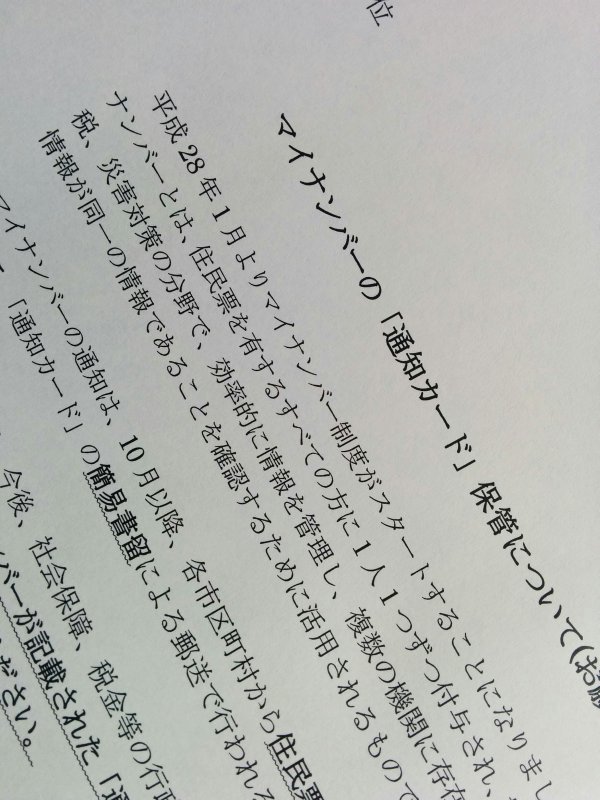 位
マイナンバーの「通知カード」保管について(お願
平成 28 年 1 月よりマイナンバー制度がスタートすることになりまし
ナンバーとは、住民票を有するすべての方に 1 人 1 つずつ付与され、
税、災害対策の分野で、効率的に情報を管理し、複数の機関に存在
情報が同一の情報であることを確認するために活用されるもので
マイナンバーの通知は、10 月以降、各市区町村から住民票
「通知カード」の簡易書留による郵送で行われる
今後、社会保障、税金等の行政
バーが記載された「通
ださい。